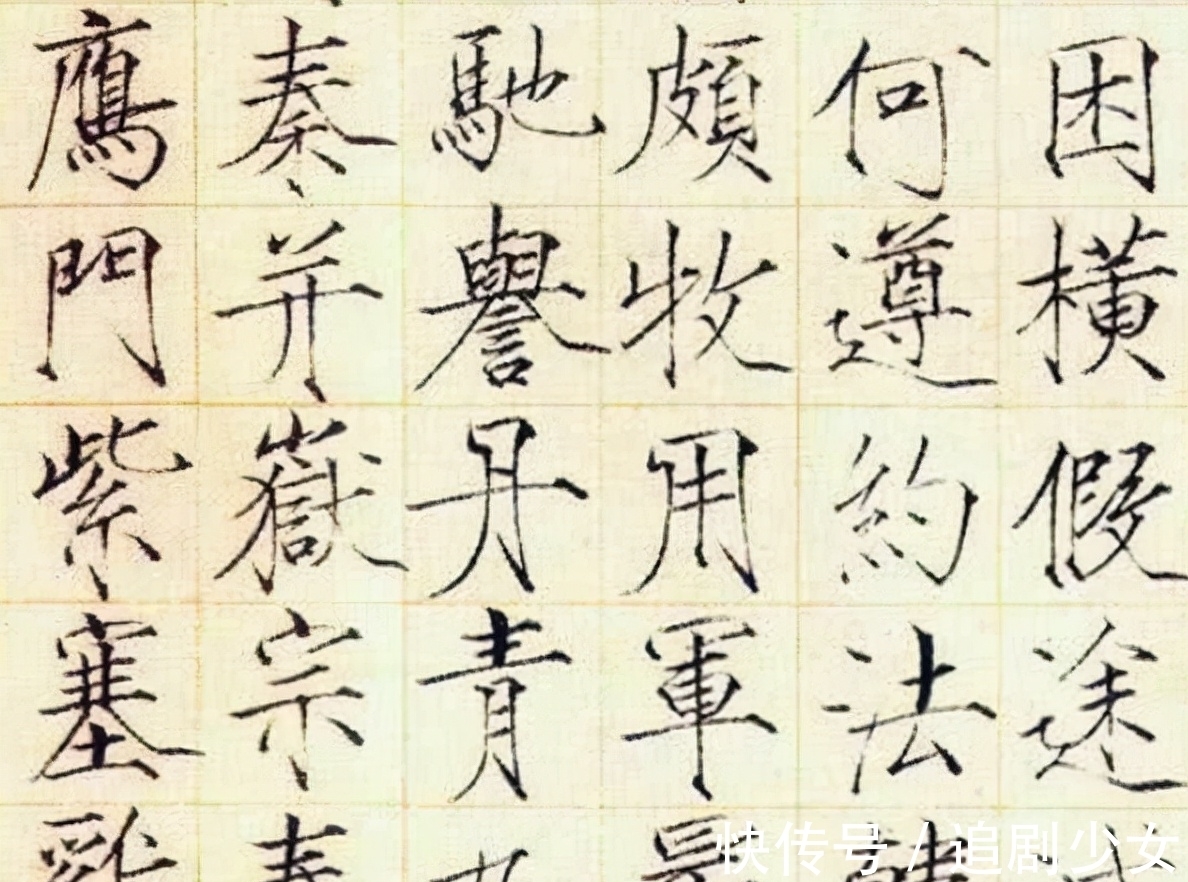 困橫假途
何遵約法
頗牧用軍
馳譽丹青
秦并嶽宗
鴈門紫塞
快传号 / 追剧少女